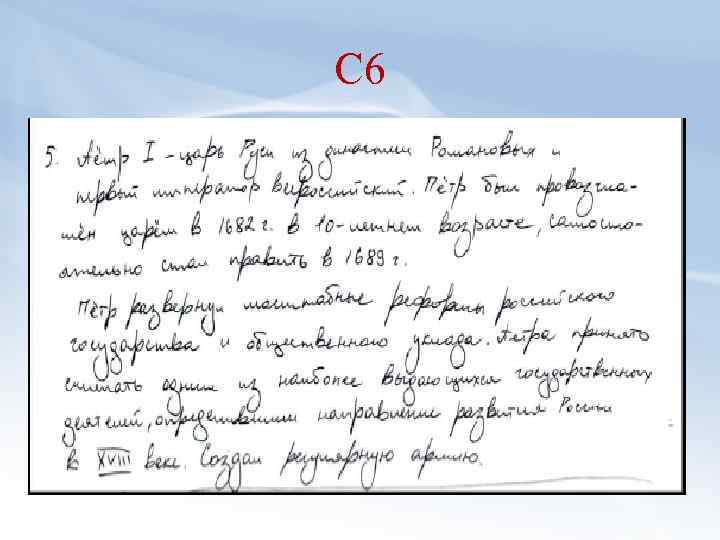 С 6
5. Пётр I – царь Руси из династии Романовых и
первый император Всероссийский. Пётр был провозгла-
шён царём в 1682 г. в 10-летнем возрасте, самосто-
ятельно стал править в 1689 г.
Пётр развернул масштабные реформы российского
государства и общественного уклада. Петра принято
считать одним из наиболее выдающихся государственных
деятелей, определившим направление развития России
в XVIII веке. Создал регулярную армию.